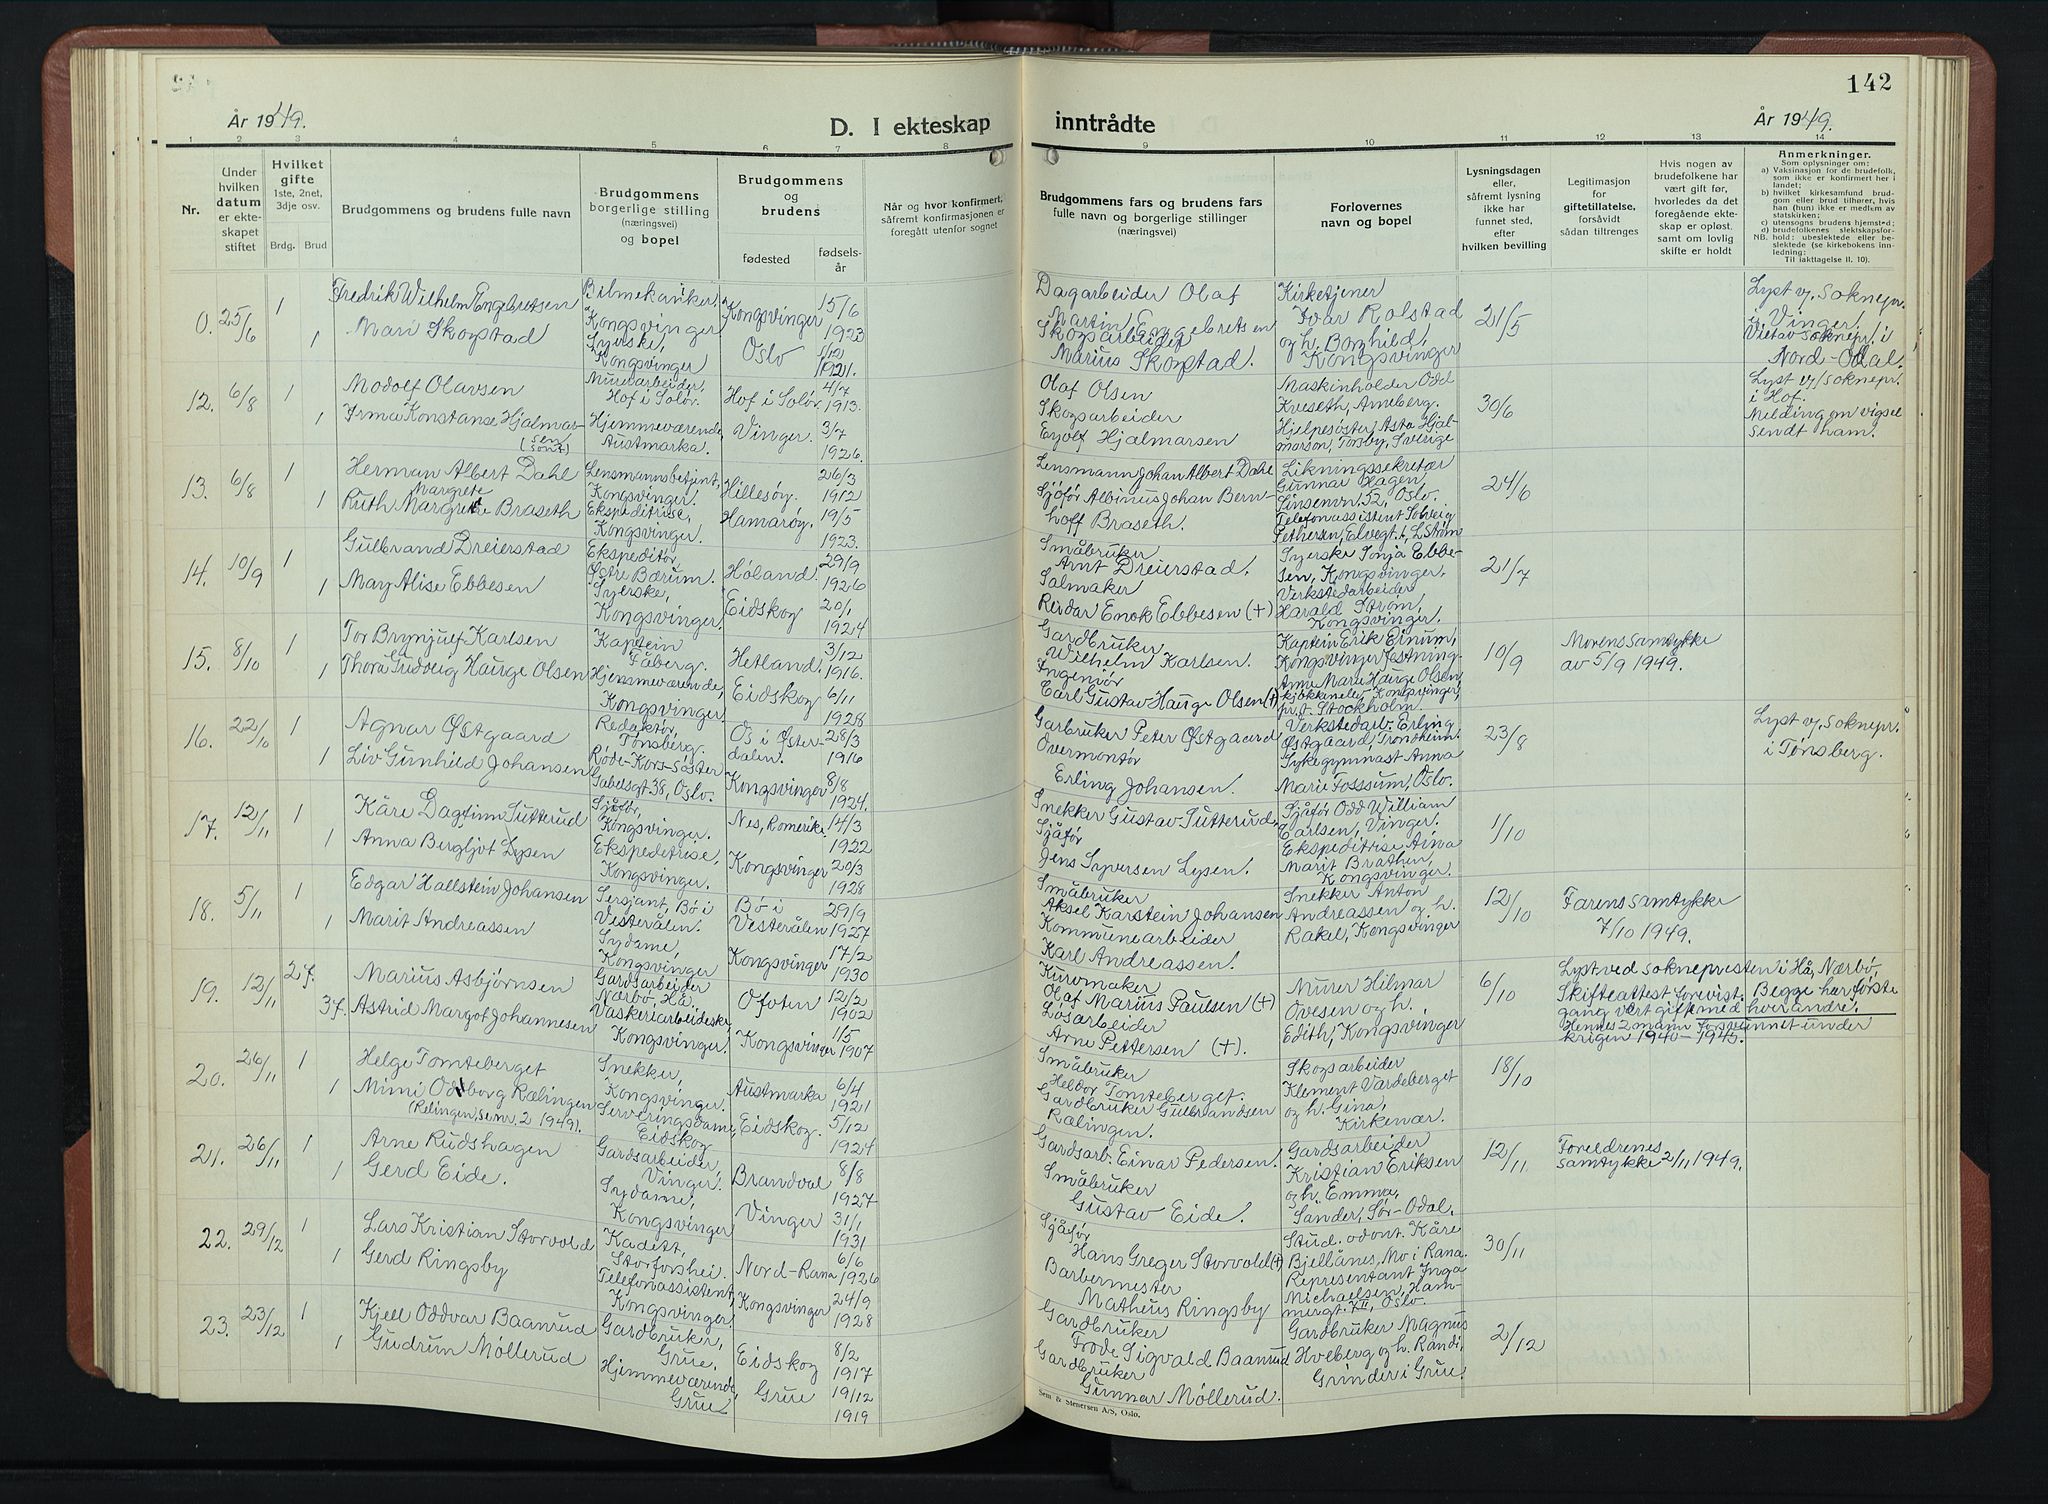 142
År 1949.
D. I ekteskap
inntrådte
År 1949.
1 2 3 4 5 6 7 8 9 10 11 12 13 14
Nr.
Under hvilken datum er ekteskapet stiftet
Hvilket gifte
1ste, 2net, 3dje osv.
Brdg. Brud
Brudgommens og brudens fulle navn
Brudgommens borgerlige stilling (næringsvei) og bopel
Brudgommens og brudens
fødested
fødselsår
Når og hvor konfirmert, såfremt konfirmasjonen er foregått utenfor sognet
Brudgommens fars og brudens fars fulle navn og borgerlige stillinger (næringsvei)
Forlovernes navn og bopel
Lysningsdagen eller, såfremt lysning ikke har funnet sted, efter hvilken bevilling
Legitimasjon for giftetillatelse, forsåvidt sådan tiltrenges
Hvis nogen av brudefolkene har vært gift før, hvorledes da det foregående ekteskap er opløst, samt om lovlig skifte er holdt
Anmerkninger.
Som oplysninger om:
a) Vaksinasjon for de brudefolk, som ikke er konfirmert her i landet;
b) hvilket kirkesamfund brudgom eller brud tilhører, hvis han (hun) ikke er medlem av statskirken;
c) utensogns brudens hjemsted;
d) brudefolkenes slektskapsforhold: ubeslektede eller beslektede (se kirkebokens innledning:
NB.
Til iakttagelse II. 10).
0. 25/6 1 1
Fredrik Wilhelm Engebretsen
Mari Skogstad
Bilmekaniker, Kongsvinger
Syerske, Kongsvinger
Kongsvinger 15/6 1923
Oslo 1/12 1921.
Dagarbeider Olaf Martin Engebretsen
Skogsarbeider Marius Skogstad.
Kirketjener Ivar Rolstad og h. Borghild, Kongsvinger
21/5
Lyst v. soknepr. i Vinger.
Vietav soknepr. i Nord-Odal.
12. 6/8 1 1
Modolf Olavsen
Irma Konstanse Hjalmarsen (sont)
Murerarbeider. Hof i Solør.
Hjemmeværende, Austmarka.
Hof i Solør. 4/7 1913.
Vinger. 3/7 1926.
Olaf Olsen
Skogsarbeider Eyolf Hjalmarsen
Maskinholder Odd Kveseth, Arneberg.
Hjelpesøster Asta Hjalmarson, Torsby, Sverige
30/6
Lyst v/ soknepr. i Hof.
Melding om vigsel sendt ham.
13. 6/8 1 1
Herman Albert Dahl
Margrete
Ruth Margrete Braseth
Lensmannsbetjent, Kongsvinger.
Ekspeditrise, Kongsvinger.
Hillesøy. 26/3 1912
Hamarøy. 19/5 1923.
Lensmann Johan Albert Dahl
Sjåfør Albinus Johan Bernhoff Braseth.
Likningssekretær Gunnar Hagen, Linsenvn. 52, Oslo.
Telefonassistent Solveig Pettersen, Elvegt. 1, L.Strøm
24/6
14. 10/9 1 1
Gulbrand Dreierstad
May Alise Ebbesen
Ekspeditør, Østre Bærum.
Syerske, Kongsvinger.
Høland. 29/9 1926
Eidskog 20/1 1924
Småbruker Arnt Dreierstad.
Salmaker Reidar Enok Ebbesen (+)
Syerske Sonja Ebbesen, Kongsvinger.
Verkstedarbeider Harald Strøm, Kongsvinger.
21/7
15. 8/10 1 1
Tor Brynjulf Karlsen
Thora Gudveig Hauge Olsen
Kaptein Fåberg.
Hjemmeværende, Kongsvinger
Hetland. 3/12 1916.
Eidskog 6/11 1928
Gardbruker Wilhelm Karlsen.
Ingeniør Carl Gustav Hauge Olsen (+)
Kaptein Erik Einum, Kongsvinger festning.
Anne Marie Hauge Olsen, Kongsvinger, pr. t. Stockholm.
10/9
Morens samtykke av 5/9 1949.
16. 22/10 1 1
Agnar Østgaard
Liv Gunhild Johansen
Redaktør, Tønsberg.
Røde-Kors-søster Gabelsgt. 38, Oslo.
Os i Østerdalen. 28/3 1916
Kongsvinger 8/8 1924.
Garbruker Peter Østgaard
Overmontør Erling Johansen.
Verkstedarb. Erling Østgaard, Trondheim.
Sykegymnast Anna Marie Fosssum, Oslo.
23/8
Lyst v. soknepr. i Tønsberg.
17. 12/11 1 1
Kåre Dagfinn Sutterud
Anna Bergljot Lysen
Sjåfør, Kongsvinger.
Ekspeditrise, Kongsvinger.
Nes, Romerike 14/3 1922
Kongsvinger 20/3 1928
Snekker Gustav Sutterud,
Sjåfør Jens Syversen Lysen.
Sjåfør Odd William Carlsen, Vinger.
Ekspeditrise Aina Marit Bråthen, Kongsvinger.
1/10
18. 5/11 1 1
Edgar Hallstein Johansen
Marit Andreassen
Sersjant, Bø i Vesterålen.
Sydame, Kongsvinger
Bø i Vesterålen 29/9 1927
Kongsvinger 17/2 1930
Småbruker Aksel Karstein Johansen
Kommunearbeider Karl Andreassen.
Snekker Anton Andreassen og h. Rakel, Kongsvinger
12/10
Farens samtykke 7/10 1949.
19. 12/11 2 g. 3 g.
Marius Asbjørnsen
Astrid Margot Johannesen
Gardsarbeider Nærbø, Hå.
Vaskeriarbeiderske, Kongsvinger.
Ofoten 12/2 1902
Kongsvinger 1/5 1907
Kurvmaker Olaf Marius Paulsen (+)
Løsarbeider Arne Pettersen (+).
Murer Hilmar Ovesen og h. Edith, Kongsvinger
6/10
Lyst ved soknepresten i Hå, Nærbø,
Skifteattest forevist. Begge har første
gang vært gift med hverandre.
Hennes 2. mann forsvunnet under
krigen 1940-1945.
20. 26/11 1 1
Helge Tomteberget
Mimi Odborg Rælingen
(Relingen, se nr. 2 1949).
Snekker, Kongsvinger.
Serveringsdame, Eidskog
Austmarka 6/4 1921
Eidskog. 5/12 1924
Småbruker Heldor Tomteberget.
Gardbruker Gulbrandsen Rælingen.
Skogsarbeider Klement Vardeberget og h. Gina, Kirkenær.
18/10
21. 26/11 1 1
Arne Rudshagen
Gerd Eide.
Gardsarbeider, Vinger.
Sydame, Kongsvinger
Brandval 8/8 1927
Vinger 31/1 1931
Gardsarb. Einar Pedersen.
Småbruker Gustav Eide.
Gardsarbeider Kristian Eriksen og h. Emma, Sander, Sør-Odal.
12/11
Foreldrenes samtykke 2/11 1949.
22. 29/12 1 1
Lars Kristian Storvold
Gerd Ringsby
Kadett, Storforshei.
Telefonassistent, Kongsvinger.
Nord-Rana 6/6 1926
Kongsvinger 24/9 1928
Sjåfør Hans Greger Storvold (+)
Barbermester Matheus Ringsby
Stud. odont. Kåre Bjellånes, Mo i Rana.
Representant Inga Michaelsen, Hammergt. VII, Oslo.
30/11
23. 23/12 1 1
Kjell Oddvar Baanrud
Gudrun Møllerud
Gardbruker, Grue.
Hjemmeværende, Grue
Eidskog 8/2 1917
Grue 19/12 1919
Gardbruker Frode Sigvald Baanrud
Gardbruker Gunnar Møllerud.
Gardbruker Magnus Hveberg og h. Randi, Grinder i Grue.
2/12
Sem & Stenersen A/S, Oslo.